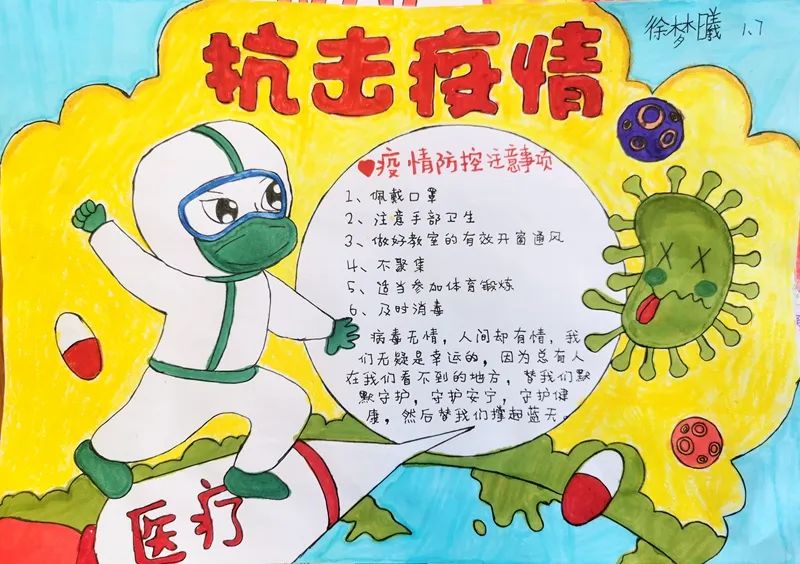 抗击疫情
徐梦曦 1.7
疫情防控注意事项
1、佩戴口罩
2、注意手部卫生
3、做好教室的有效开窗通风
4、不聚集
5、适当参加体育锻炼
6、及时消毒
病毒无情，人间却有情，我
们无疑是幸运的，因为总有人
在我们看不到的地方，替我们默
默守护，守护安宁，守护健
康，然后替我们撑起蓝天。
医疗